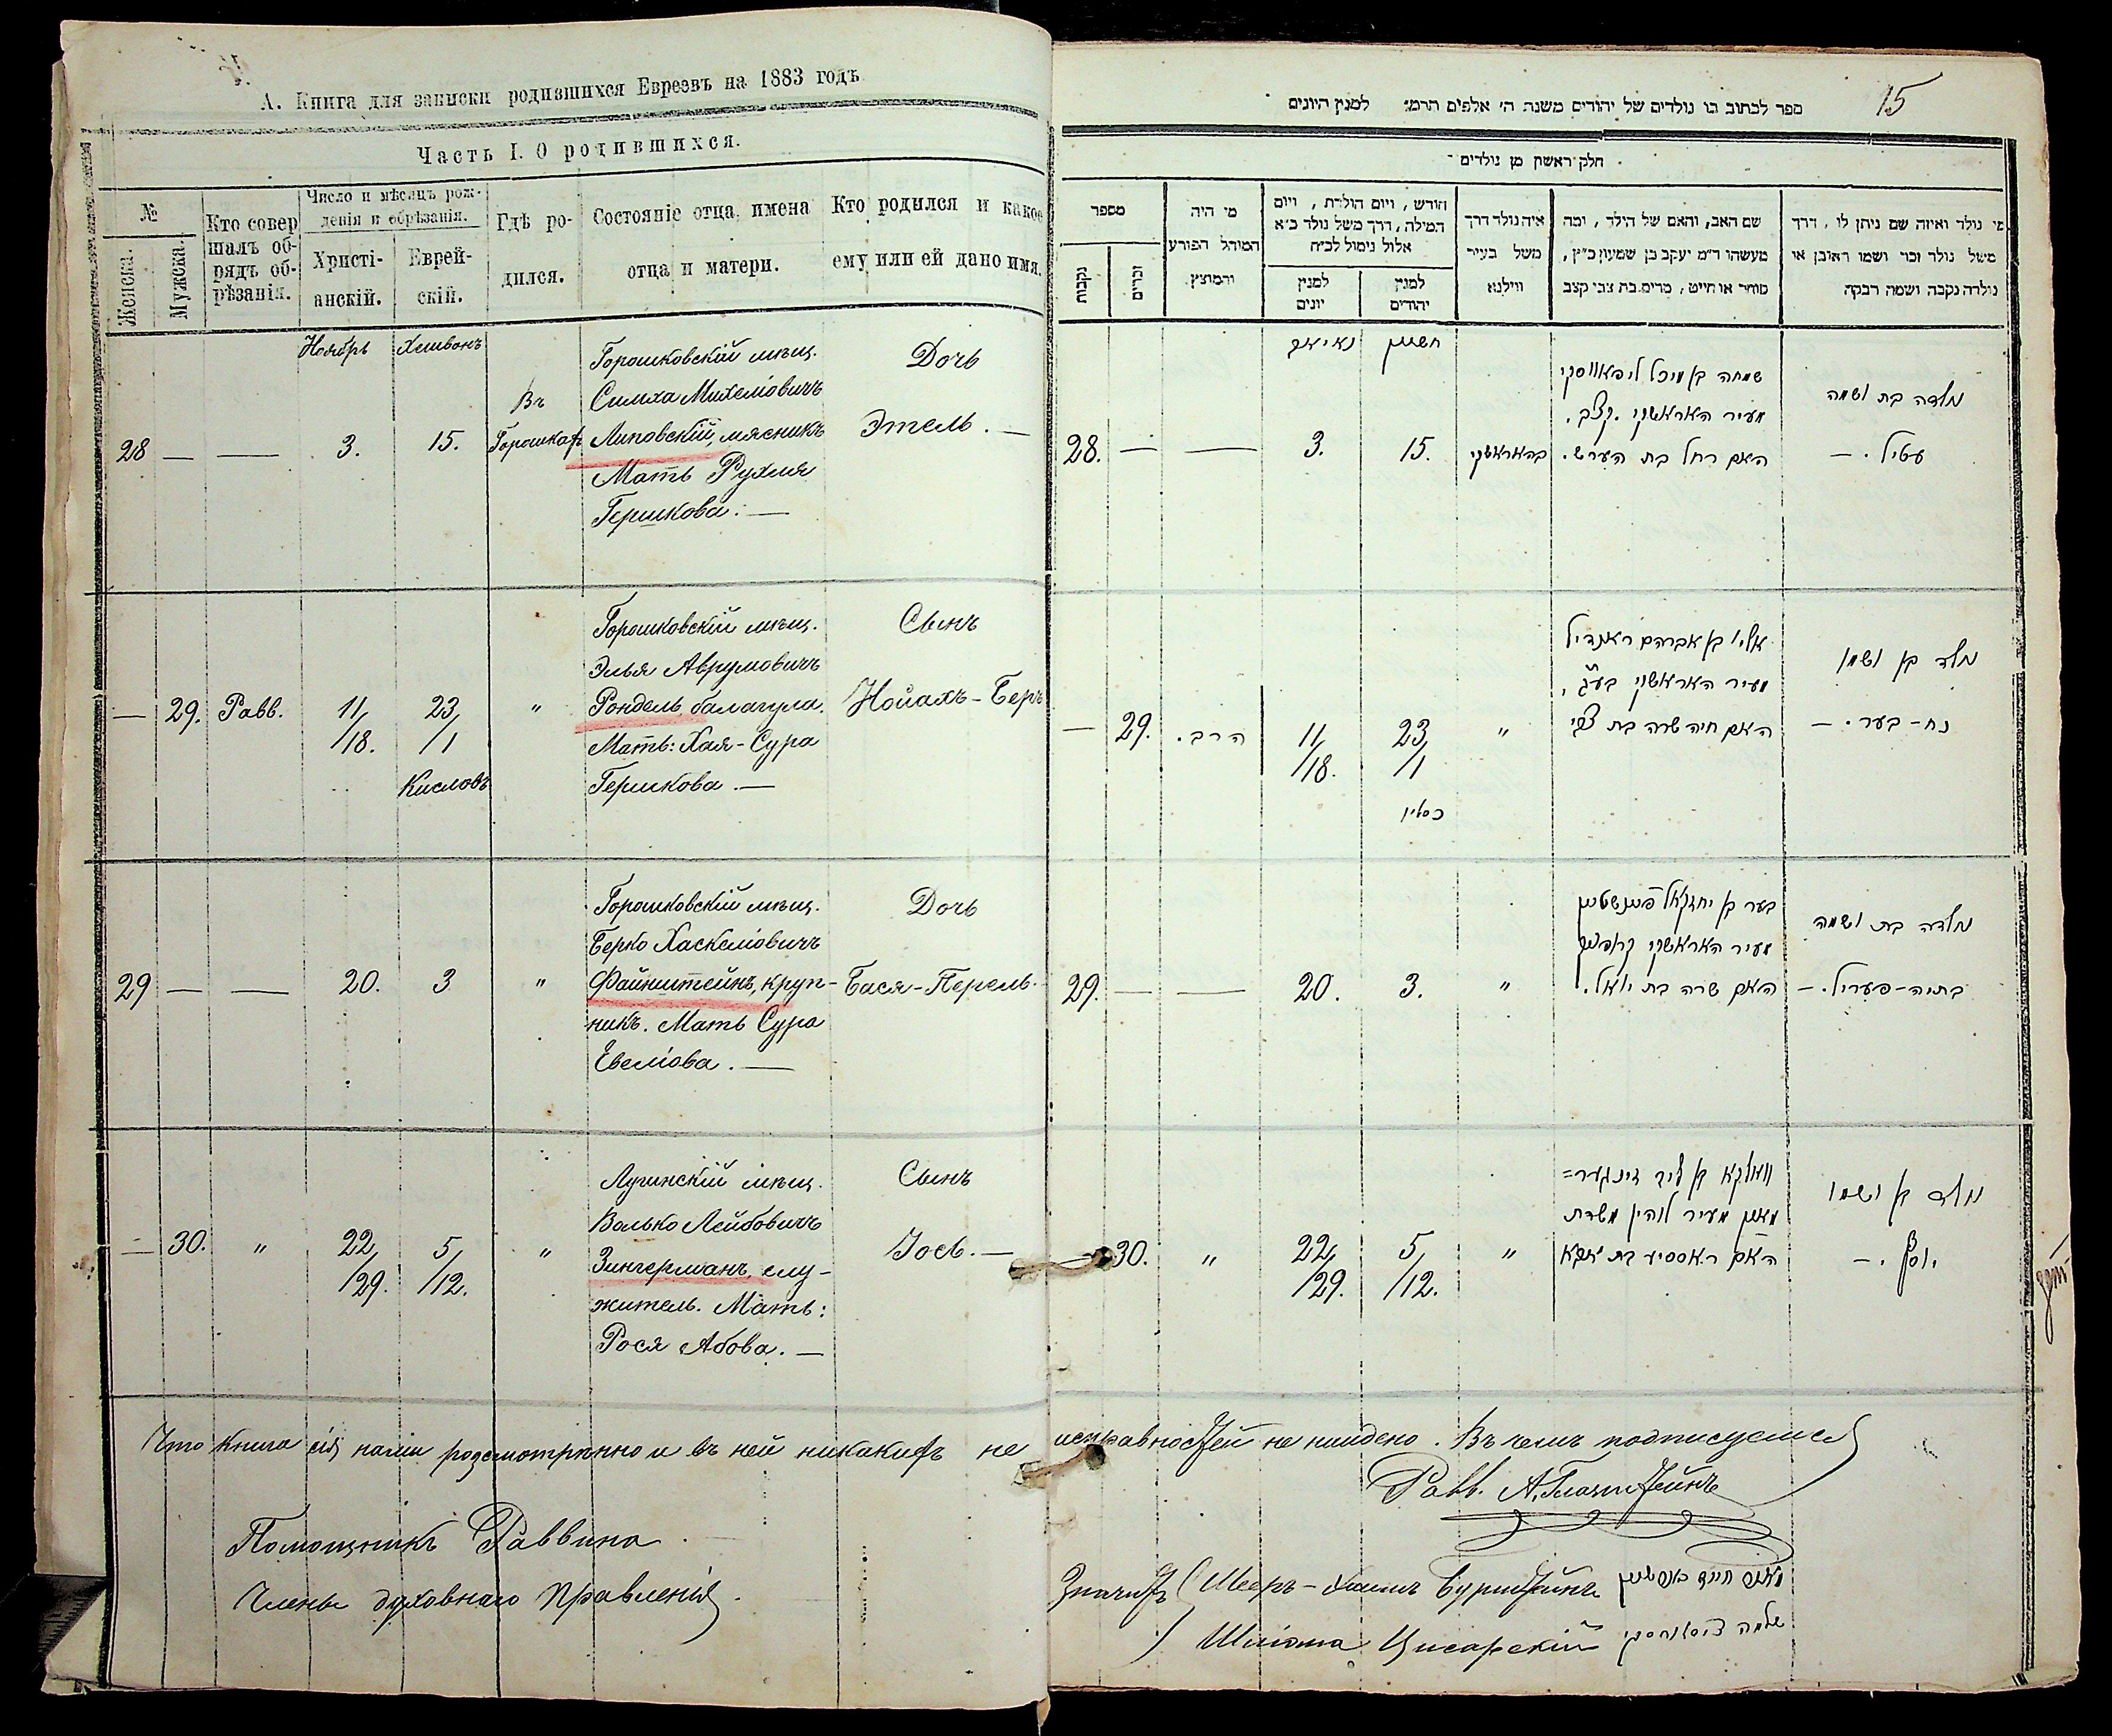 А. Книга для записки родившихся Евреевъ на 1883 годъ
Часть I. О родившихся.
№
Женска.
Мужска.
Кто совер
шалъ об-
рядъ об-
рѣзанія.
Число и мѣсяцъ рож-
денія и обрѣзанія.
Христі-
анскій.
Еврей-
скій.
Гдѣ ро-
дился.
Состояніе отца, имена
отца и матери.
Кто родился и какое
ему или ей дано имя.
Ноябрь
Хешвонъ
28 — — 3. 15.
Въ
Горошкахъ
Горошковскій мѣщ.
Симха Михеліовичъ
Липовскій, мясникъ
Мать Рухля
Гершкова. —
Дочь
Этель. —
— 29. Равв. 11/18. 23/1
Кисловъ
"
Горошковскій мѣщ.
Элья Аврумовичъ
Рондель, балагула.
Мать: Хая-Сура
Гершкова. —
Сынъ
Нойахъ-Беръ
29 — — 20. 3 "
Горошковскій мѣщ.
Берко Хаскеліовичъ
Файнштейнъ, круп-
никъ. Мать Сура
Евеліова. —
Дочь
Бася-Перель.
— 30. " 22/29. 5/12. "
Лугинскій мѣщ.
Волько Лейбовичъ
Зингерманъ, слу-
житель. Мать:
Рося Абова. —
Сынъ
Іось. —
15
ספר לכתוב בו נולדים של יהודים משנת ה׳ אלפים תרמ׳ למנין היונים
חלק ראשון מן נולדים
מספר
נקבות
זכרים
מי היה
המוהל הפורע
והמוצץ
חודש, ויום הולדת, ויום
המילה, דרך משל נולד כ״א
אלול נימול לכ״ח
למנין
יונים
למנין
יהודים
איה נולד דרך
משל בעיר
ווילנא
שם האב, והאם של הילד, ומה
מעשהו ד״מ יעקב בן שמעון כ״ץ,
סוחר או חייט, מרים בת צבי קצב
מי נולד ואיזה שם ניתן לו, דרך
משל נולד זכר ושמו ראובן או
נולדה נקבה ושמה רבקה
חשוון
28. — — 3. 15.
שמחה בן מיכל ליפאווסקי
מעיר האראשקי. קצב.
האם רחל בת הערש.
נולדה בת ושמה
עטיל. —
— 29. הרב. 11/18. 23/1 "
כסליו
אליו בן אברהם ראנדיל
מעיר האראשקי בע״ג,
האם חיה שרה בת צבי
נולד בן ושמו
נח-בער. —
29. — — 20. 3. "
בער בן יחזקאל פיינשטיין
מעיר האראשקי
האם שרה בת יואל.
נולדה בת ושמה
בתיה-פעריל. —
— 30. " 22/29. 5/12. "
וואלקא בן ליב זינגער=
מאן מעיר לוהין משרת
האם ראססיע בת אבא
נולד בן ושמו
יוסף. —
Что книга сія нами розсмотрѣнно и въ ней никакихъ не исправностей не найдено. Въ чемъ подписуемся
Равв. А. Глазштейнъ
Помощникъ Раввина
Члены духовнаго Правленія.
Мееръ-Хаимъ Бурштейнъ
Шліома Цисарскій